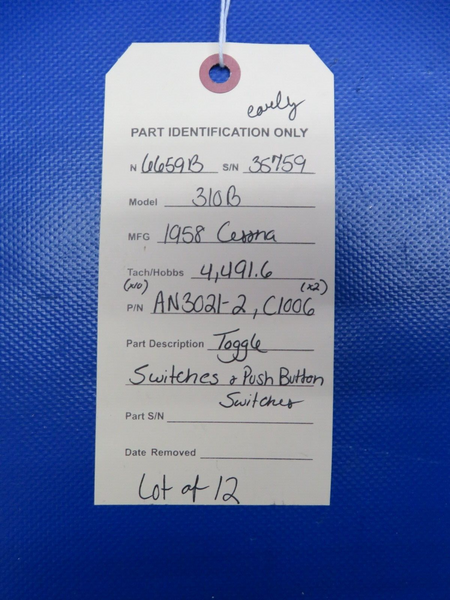 early
PART IDENTIFICATION ONLY
N 6659B S/N 35759
Model 310B
MFG 1958 Cessna
Tach/Hobbs 4,491.6
(NO) (x2)
P/N AN3021-2, C1006
Part Description Toggle
Switches & Push Button
Switches
Part S/N
Date Removed
Lot of 12